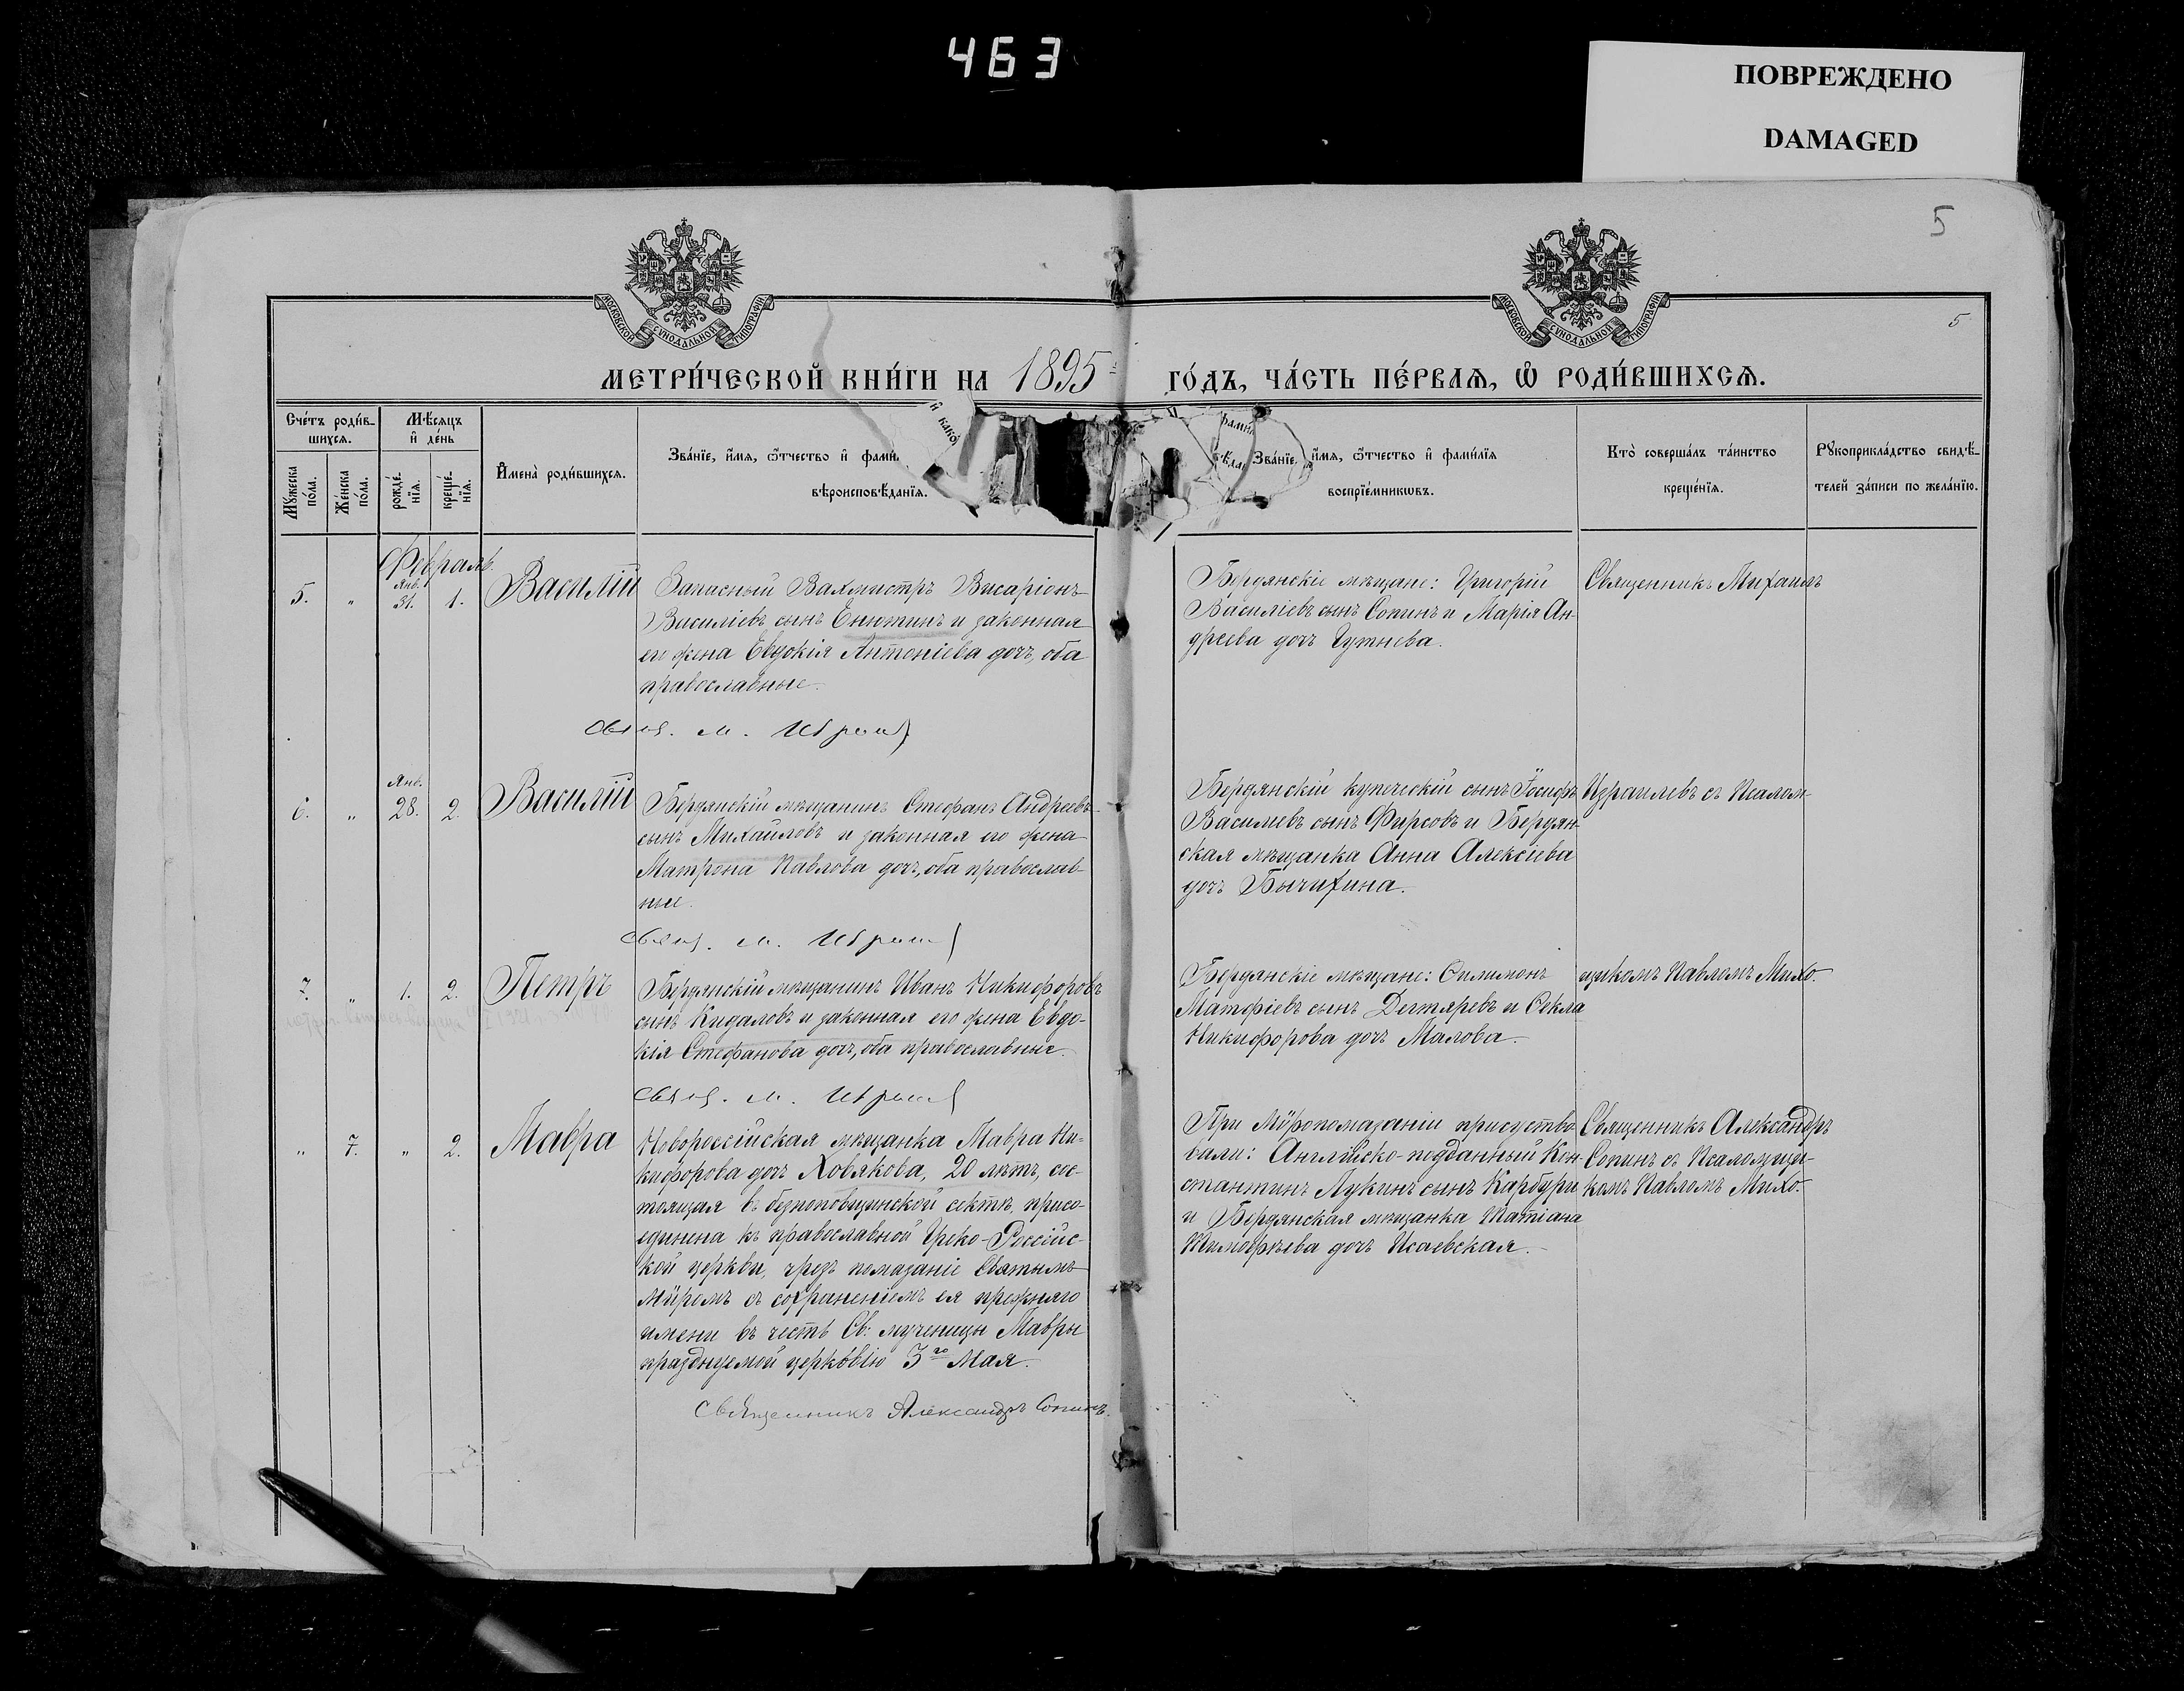 463
ПОВРЕЖДЕНО
DAMAGED
5
5
МОСКОВСКОЙ СУНОДАЛЬНОЙ ТИПОГРАФІИ
МОСКОВСКОЙ СУНОДАЛЬНОЙ ТИПОГРАФІИ
МЕТРИ́ЧЕСКОЙ КНИ́ГИ НА 1895 ГО́ДЪ, ЧА́СТЬ ПЕ́РВАЯ, Ѿ РОДИ́ВШИХСЯ.
Сче́тъ роди́в-
шихся.
Мѣ́сяцъ
и҆ де́нь
Мꙋ́жеска
по́ла.
Же́нска
по́ла.
рожде́-
нїя.
креще́-
нїя.
И҆мена̀ роди́вшихся.
Зва́нїе, и҆́мя, ѻ҆́тчество и҆ фами́
и҆ како́
вѣроисповѣ́данїя.
фами́
Зва́нїе, и҆́мя, ѻ҆́тчество и҆ фами́лїя
воспрїе́мникѡвъ.
Кто̀ соверша́лъ та́инство
креще́нїя.
Рꙋкоприкла́дство свидѣ́-
телей за́писи по жела́нїю.
Февраль.
5. " Янв. 31. 1. Василій
Запасный Вахмистръ Висаріонъ
Василіевъ сынъ Енютинъ и законная
его жена Евдокія Антоніева дочь, оба
православные.
Бердянскіе мѣщане: Григорій
Василіевъ сынъ Сопинъ и Марія Ан-
дреева дочь Гутнева.
Священникъ Михаилъ
Свящ. М.
6. " Янв. 28. 2. Василій
Бердянскій мѣщанинъ Стефанъ Андреевъ
сынъ Михайловъ и законная его жена
Матрона Павлова дочь, оба православ-
ные.
Бердянскій купеческій сынъ Іосифъ
Василіевъ сынъ Фирсовъ и Бердян-
ская мѣщанка Анна Алексіева
дочь Бычихина.
Израилевъ съ Псалом-
Свящ. М.
7. " 1. 2. Петръ
Бердянскій мѣщанинъ Иванъ Никифоровъ
сынъ Кидаловъ и законная его жена Евдо-
кія Стефанова дочь, оба православные.
Бердянскіе мѣщане: Филимонъ
Матфіевъ сынъ Дегтяревъ и Фекла
Никифорова дочь Малова.
щикомъ Павломъ Михо.
Свящ. М.
" 7. " 2. Мавра
Новороссійская мѣщанка Мавра Ни-
кифорова дочь Ховякова, 20 лѣтъ, сос-
тоящая въ безпоповщинской сектѣ, присо-
единена къ православной Греко-Россійс-
кой церкви, чрезъ помазаніе Святымъ
Мѵромъ съ сохраненіемъ ея прежняго
имени въ честь Св. мученицы Мавры
празднуемой церковію 3го Мая.
При Мѵропомазаніи присутство-
вали: Англійско-подданный Кон-
стантинъ Лукинъ сынъ Карбури
и Бердянская мѣщанка Татіана
Тимофѣева дочь Исаевская.
Священникъ Александръ
Сопинъ съ Псаломщи-
комъ Павломъ Михо.
Священникъ Александръ Сопинъ.